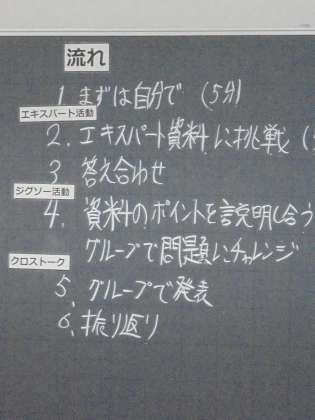 流れ
1. まずは自分で (5分)
エキスパート活動
2. エキスパート資料に挑戦 (
3. 答え合わせ
ジグソー活動
4. 資料のポイントを説明し合う
グループで問題にチャレンジ
クロストーク
5. グループで発表
6. 振り返り